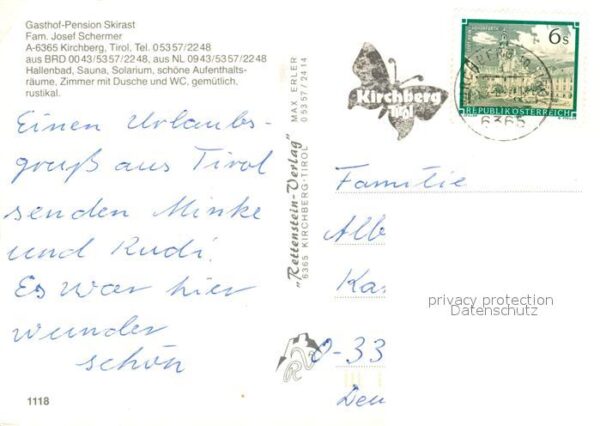 Gasthof-Pension Skirast
Fam. Josef Schermer
A-6365 Kirchberg, Tirol. Tel. 0 53 57 / 22 48
aus BRD 00 43/53 57/22 48, aus NL 09 43/53 57/22 48
Hallenbad, Sauna, Solarium, schöne Aufenthalts-
räume, Zimmer mit Dusche und WC, gemütlich,
rustikal.
Einen Urlaubs-
gruß aus Tirol
senden Minke
und Rudi.
Es war hier
wunder
schön
1118
"Rettenstein-Verlag"
6365 KIRCHBERG-TIROL
MAX ERLER
0 53 57 / 24 14
Kirchberg
Tirol
6 S
REPUBLIK ÖSTERREICH
6365
Familie
Alb
Ka
0-33
Den
privacy protection
Datenschutz